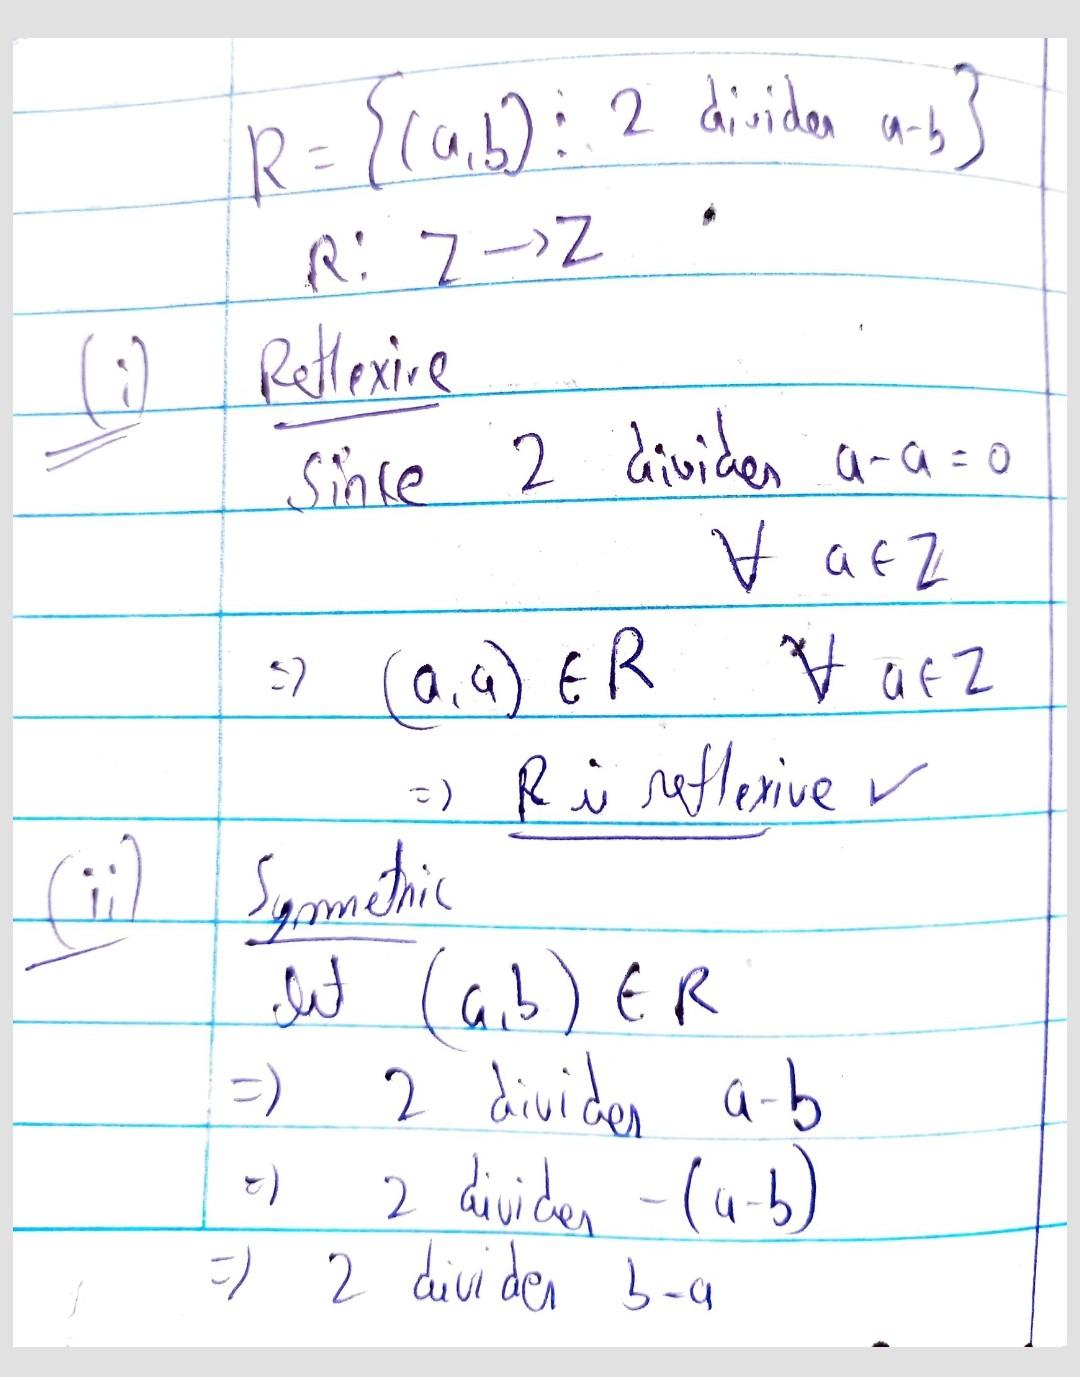 R = {(a,b) : 2 divides a-b}
R: Z → Z
(i) Reflexive
Since 2 divides a-a = 0
∀ a ∈ Z
⇒ (a,a) ∈ R ∀ a ∈ Z
⇒ R is reflexive ✓
(ii) Symmetric
let (a,b) ∈ R
⇒ 2 divides a-b
⇒ 2 divides -(a-b)
⇒ 2 divides b-a